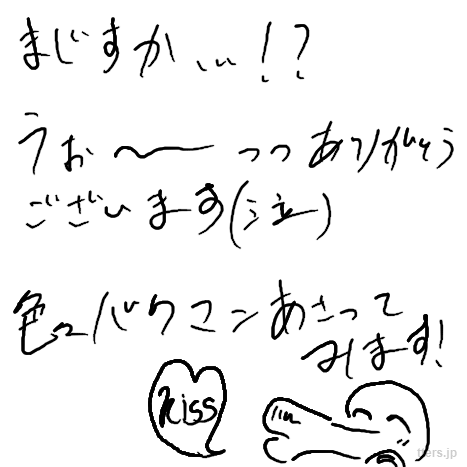 まじすか…!?
うお〜っっありがとう
ございます(泣)
色々バクマンあさって
みます!
kiss
tters.jp